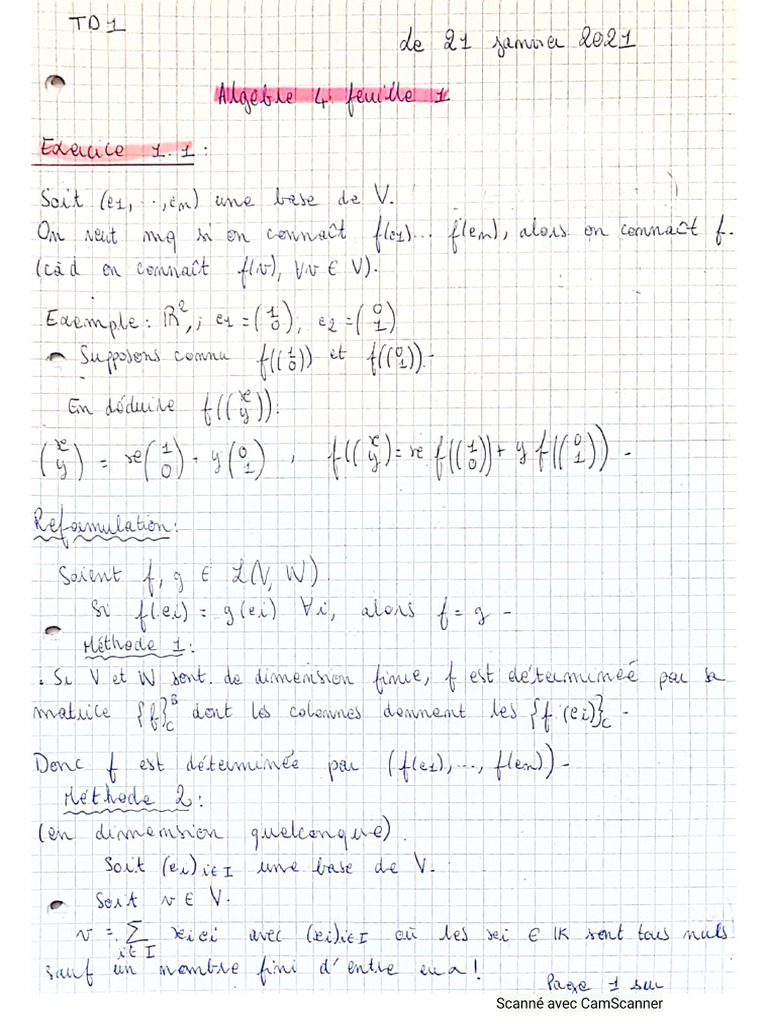 TD1
de 21 janvier 2021
Algebre 4: feuille 1
Exercice 1.1:
Soit (e1, ..., en) une base de V.
On veut mq si on connaît f(e1)... f(en), alors on connaît f.
(càd on connaît f(v), ∀v ∈ V).
Exemple: ℝ²; e1 = (1 0); e2 = (0 1)
Supposons connu f((1 0)) et f((0 1)).
En déduire f((x y)):
(x y) = x(1 0) + y(0 1), f((x y) = x f((1 0)) + y f((0 1)).
Reformulation:
Soient f, g ∈ L(V, W)
Si f(ei) = g(ei) ∀i, alors f = g -
Méthode 1:
. Si V et W sont de dimension finie, f est déterminéé par sa
matrice {f}^B_C dont les colonnes donnent les {f(ei)}_C -
Donc f est déterminéé par (f(e1), ..., f(en)) -
Méthode 2:
(en dimension quelconque).
Soit (ei)i∈I une base de V.
Soit v ∈ V.
v = ∑ i∈I xiei avec (xi)i∈I où les xi ∈ IK sont tous nuls
sauf un nombre fini d'entre eux!
Page 1 sur
Scanné avec CamScanner